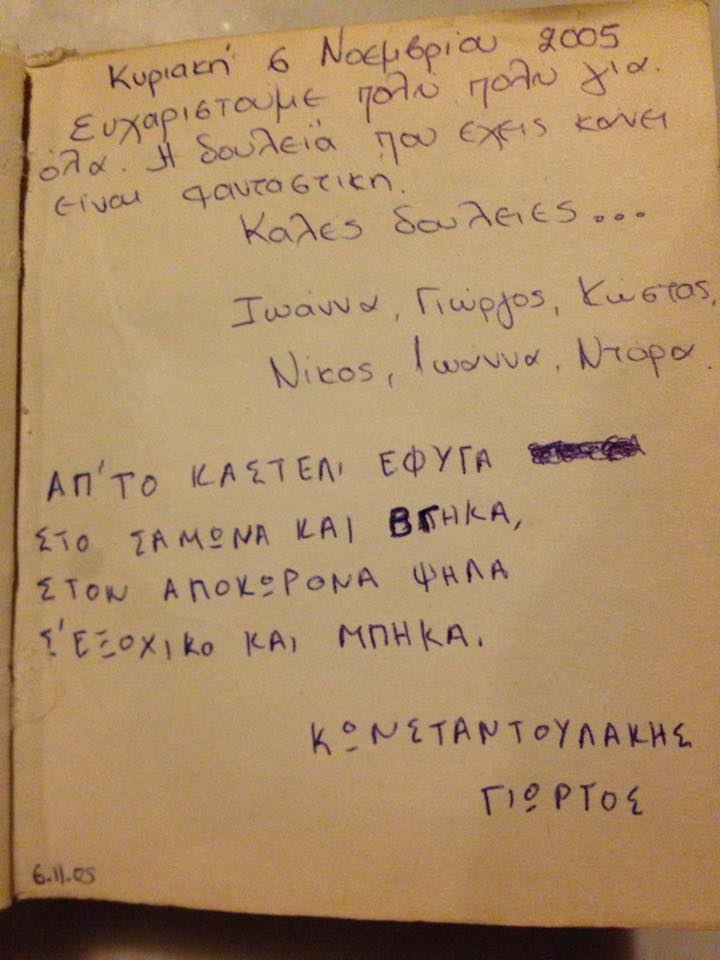 Κυριακή 6 Νοεμβριου 2005
Ευχαριστουμε πολύ πολύ για.
όλα. Η δουλειά που έχεις κάνει
είναι φανταστική.
Καλές δουλειές...
Ιωάννα, Γιώργος, Κώστας,
Νίκος, Ιωάννα, Ντόρα.
ΑΠ'ΤΟ ΚΑΣΤΕΛΙ ΕΦΥΓΑ
ΣΤΟ ΣΑΜΩΝΑ ΚΑΙ ΒΓΗΚΑ,
ΣΤΟΝ ΑΠΟΚΩΡΟΝΑ ΨΗΛΑ
Σ'ΕΞΟΧΙΚΟ ΚΑΙ ΜΠΗΚΑ.
ΚΩΝΣΤΑΝΤΟΥΛΑΚΗΣ
ΓΙΩΡΓΟΣ
6.11.05